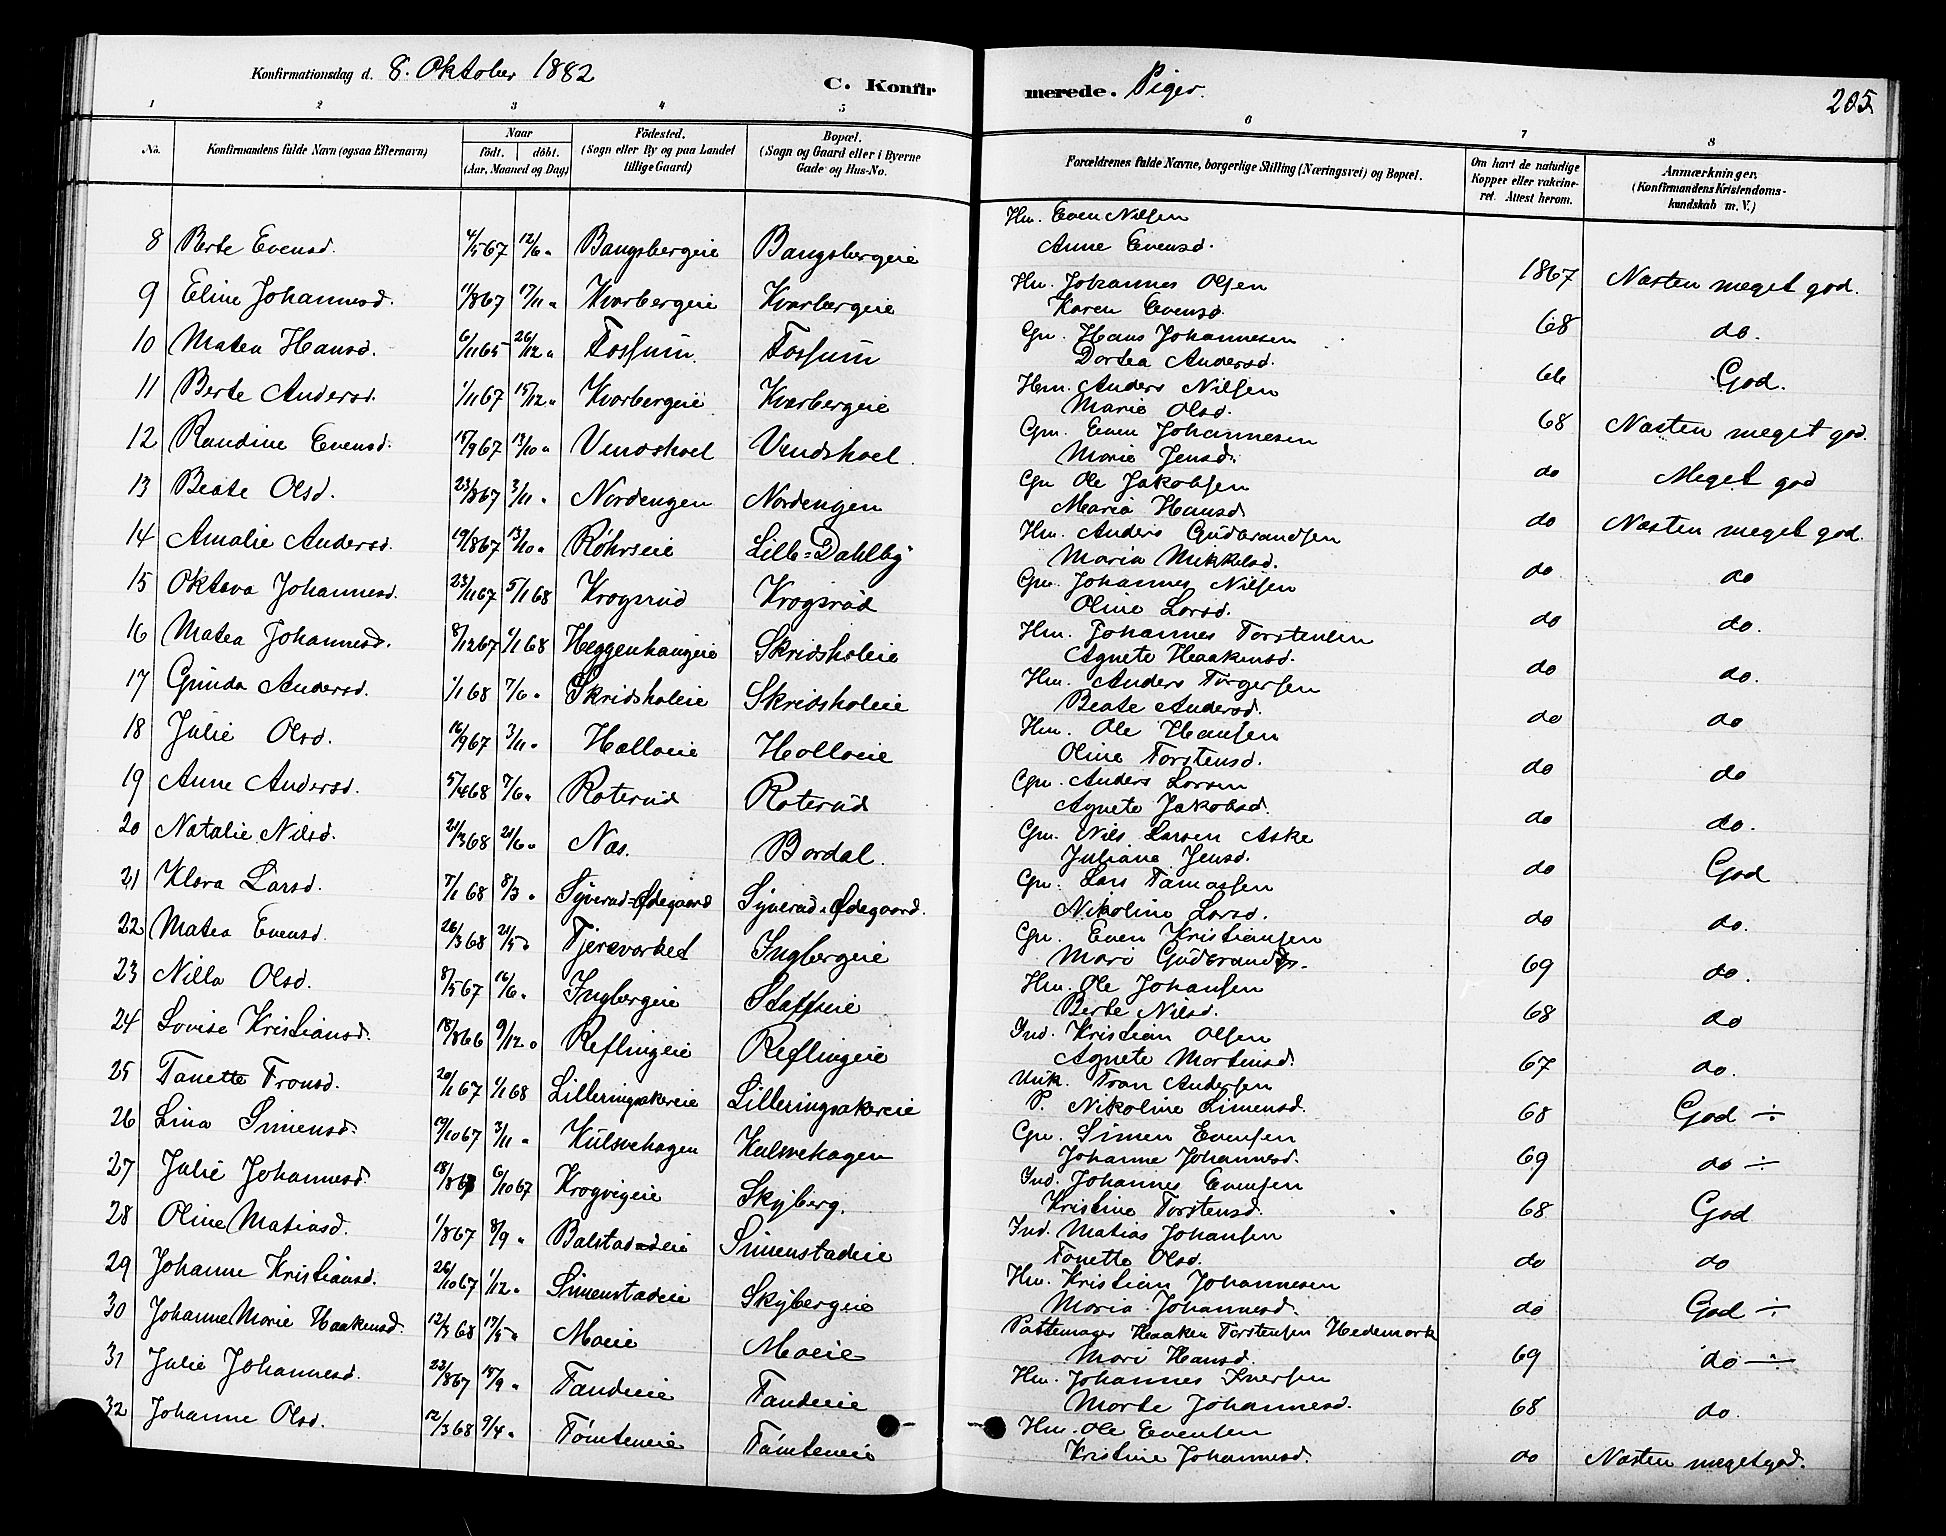 Konfirmationsdag d. 8. Oktober 1882
C. Konfirmerede. Piger. 205
1 2 3 4 5 6 7 8
No. Konfirmandens fulde Navn (ogsaa Efternavn) Naar födt. döbt. (Aar, Maaned og Dag) Födested. (Sogn eller By og paa Landet tillige Gaard) Bopæl. (Sogn og Gaard eller i Byerne Gade og Hus-No. Forældrenes fulde Navne, borgerlige Stilling (Næringsvei) og Bopæl. Om havt de naturlige Kopper eller vakcineret. Attest herom. Anmærkninger. (Konfirmandens Kristendomskundskab m. V.)
8 Berte Evensd. 4/5 67 12/6 " Bangsbergeie Bangsbergeie Hm. Even Nilsen Anne Evensd. 1867 Næsten meget god.
9 Eline Johannesd. 11/8 67 17/11 " Kvarbergeie Kvarbergeie Hm. Johannes Olsen Karen Evensd. 68 do.
10 Matea Hansd. 6/11 65 26/12 " Fossum Fossum Gm. Hans Johannesen Dortea Andersd. 66 God.
11 Berte Andersd. 1/11 67 15/12 " Kvarbergeie Kvarbergeie Hm. Anders Nilsen Marie Olsd. 68 Næsten meget god.
12 Randine Evensd. 15/9 67 13/10 " Vindshoel Vindshoel Gm. Even Johannesen Marie Jensd. do Meget god
13 Beate Olsd. 23/8 67 3/11 " Nordengen Nordengen Gm Ole Jakobsen Maria Hansd. do Næsten meget god.
14 Amalie Andersd. 19/8 67 13/10 " Röhrseie Lille=Dahlby Hm. Anders Gudbrandsen Maria Mikkelsd. do do
15 Oktava Johannesd. 23/11 67 5/1 68 Krogsrud Krogsrud Gm. Johannes Nilsen Oline Larsd. do do.
16 Matea Johannesd. 8/12 67 1/1 68 Heggenhaugeie Skridsholeie Hm. Johannes Torstensen Agnete Haakensd. do do.
17 Gunda Andersd. 1/1 68 7/6 " Skridsholeie Skridsholeie Hm. Anders Torgersen Beate Andersd. do do
18 Julie Olsd. 16/9 67 3/11 " Holloeie Holloeie Hm. Ole Hansen Oline Torstensd. do do
19 Anne Andersd. 5/4 68 7/6 " Roterud Roterud Gm. Anders Larsen Agnete Jakobsd. do do.
20 Natalie Nilsd. 21/3 68 21/6 " Næs. Bordal. Gm. Nils Larsen Aske Juliane Jensd. do God
21 Klara Larsd. 7/1 68 8/3 " Syverud=Ødegaard Syverud=Ødegaard. Gm. Lars Tamassen Nikoline Larsd. do do.
22 Matea Evensd. 26/3 68 21/5 " Tjernsvarket Ingbergeie Gm. Even Kristiansen Mari Gudbrandsd. 69 do.
23 Nilla Olsd. 8/5 67 16/6 " Ingbergeie Staffseie Hm. Ole Johansen Berte Nilsd. 68 do
24 Lovise Kristiansd. 18/8 66 9/12 " Reflingeie Reflingeie Ind. Kristian Olsen Agnete Mortensd. 67 do.
25 Tanette Tronsd. 20/11 67 1/1 68 Lilleringsakereie Lilleringsakereie Unk. Tron Andersen P. Nikoline Simensd. 68 God ÷
26 Lina Simensd. 19/10 67 3/11 " Kulsvehagen Kulsvehagen Gm. Simen Evensen Johanne Johannesd. 69 do ÷
27 Julie Johannesd. 18/8 67 6/10 67 Krogvigeie Skyberg. Ind. Johannes Evensen Kristine Torstensd. 68 God
28 Oline Matiasd. 1/8 67 8/9 " Balstadeie Simenstadeie Ind. Matias Johansen Tonette Olsd. do do
29 Johanne Kristiansd. 26/10 67 1/12 " Simenstadeie Skybergeie Hm. Kristian Johannesen Maria Johannesd. do God ÷
30 Johanne Marie Haakensd. 12/3 68 17/5 " Moeie Moeie Pottemager Haaken Torstensen Hedemark Mari Hansd. 69 do ÷
31 Julie Johannesd. 23/8 67 15/9 " Tandeeie Tandeeie Hm. Johannes Iversen Marte Johannesd. 68 do.
32 Johanne Olsd. 12/3 68 9/4 " Tömteneie Tömteneie Hm. Ole Evensen Kristine Johannesd. do Næsten meget god.